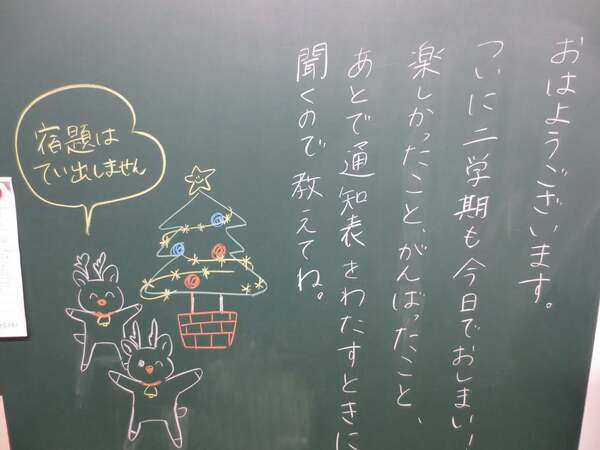 おはようございます。
ついに二学期も今日でおしまい!
楽しかったこと、がんばったこと、
あとで通知表をわたすときに
聞くので教えてね。
宿題は
てい出しません